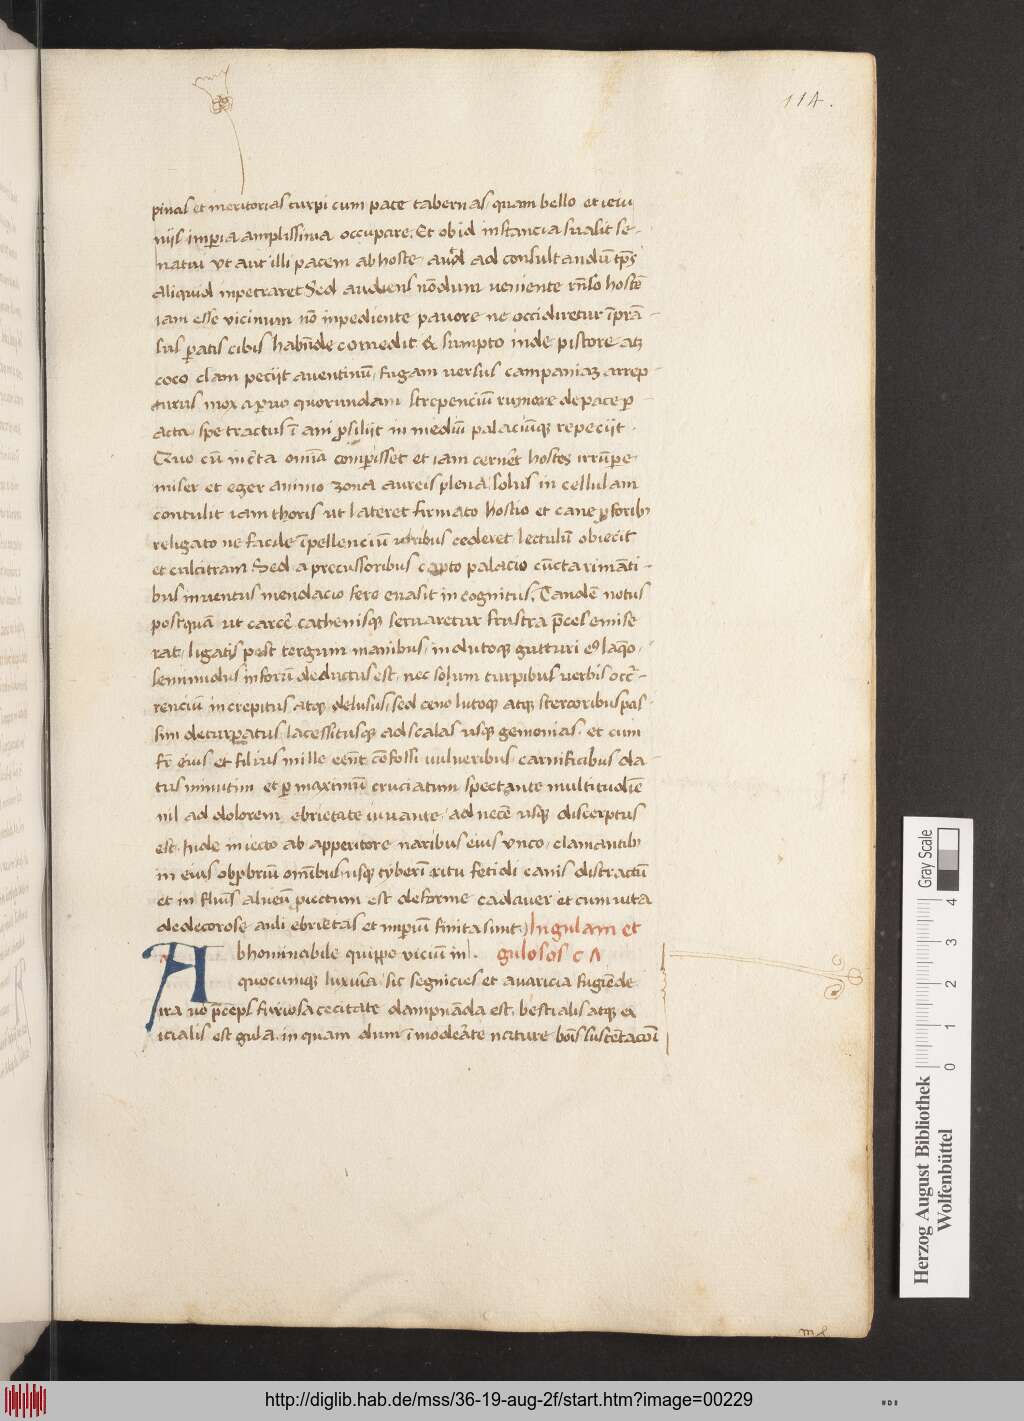 114.
pinas et meritorias turpi cum pace tabernas quam bello et ieiu
nijs imp̄ia amplissima occupare. Et ob id instancia sualit se-
natui vt aut illi pacem ab hoste aut̄ ad consultandū tp̄s
aliquid inpetraret Sed audiens nōdum ueniente rn̄so hostē
iam esse vicinum nō inpediente pauore ne occidiretur īprā-
sus ꝑatis cibis habūde comedit & sumpto inde pistore atꝫ
coco clam peciit auentinū, fugam uersus campaniaꝫ arrep-
turus mox a paruo quorundam strepenciū rumore de pace ꝑ-
acta, spe tractus ī ani ꝓsiliit in mediū palaciūqꝫ repeciit.
Quo cū incta omīa comperisset et iam cerneret hostes irrūpe
miser et eger animo zona aureis plena, solus in cellulam
contulit iam thoris ut lateret firmato hostio et cane ꝓ forib
religato ne facile īpellenciū uiribus cederet lectulū obiecit
et culcitram Sed a precussoribus capto palacio cūcta rimāti-
bus inuentus mendacio fere euasit incognitus. Tandē notus
postquā ut carcē cathenisqꝫ seruaretur frustra p̄ces emise
rat, ligatis post tergum manibus, indutoqꝫ gutturi eꝰ laqo,
seminudus in forū deductus est, nec solum turpibus uerbis occr̄-
renciū increpitus atqꝫ delusus, sed ceno lutoqꝫ atqꝫ stercoribus pas-
sim deturpatus lacessitusqꝫ ad scalas usqꝫ gemonias. et cum
fr̄ eius et filius mille eēnt cōfossi uulneribus, carnificibus da-
tus minutim et ꝑ maximū cruciatum spectante multitudīe
nil ad dolorem ebrietate iuuante, ad necē usqꝫ discerptus
est. Inde iniecto ab apperitore naribus eius vnco, clamantib
in eius obprobriū omībus usqꝫ tyberī ritu fetidi canis distractū
et in fluis alueū proiectum est deforme cadauer et cum uita
dedecorose auli ebrietas et imperiū finita sunt. In gulam et
Abhominabile quippe viciū in gulosos c A
quocumqꝫ luxuria, sic segnicies et auaricia fugiēde
ira uō p̄ceps furiosa cecitate dampnāda est, bestialis atqꝫ ex
icialis est gula, in quam dum īmoderate nature bōis sustētacōi
me
Gray Scale
0 1 2 3 4
Herzog August Bibliothek
Wolfenbüttel
http://diglib.hab.de/mss/36-19-aug-2f/start.htm?image=00229